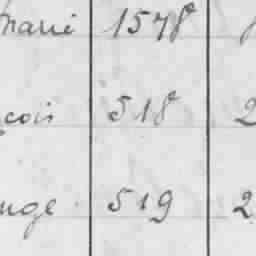 marie 1578
çois 518 2
ange 519 2